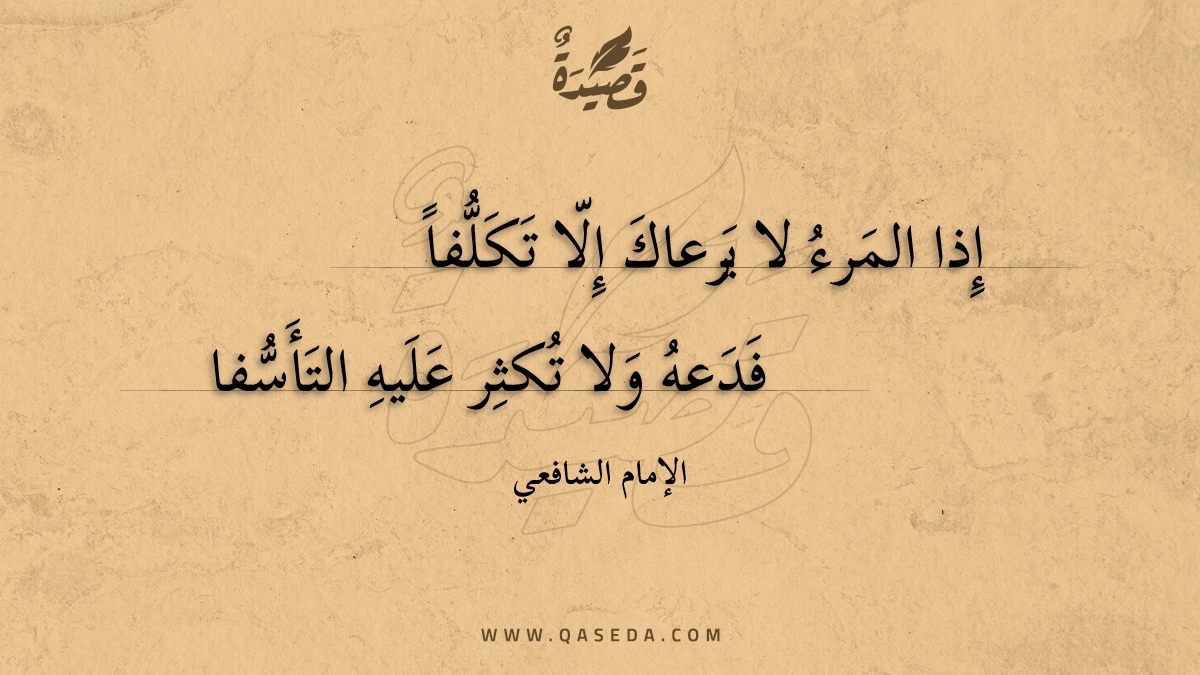 قَصِيْدَةٌ
إِذا المَرءُ لا يَرعاكَ إِلّا تَكَلُّفاً
فَدَعهُ وَلا تُكثِر عَلَيهِ التَأَسُّفا
الإمام الشافعي
WWW.QASEDA.COM